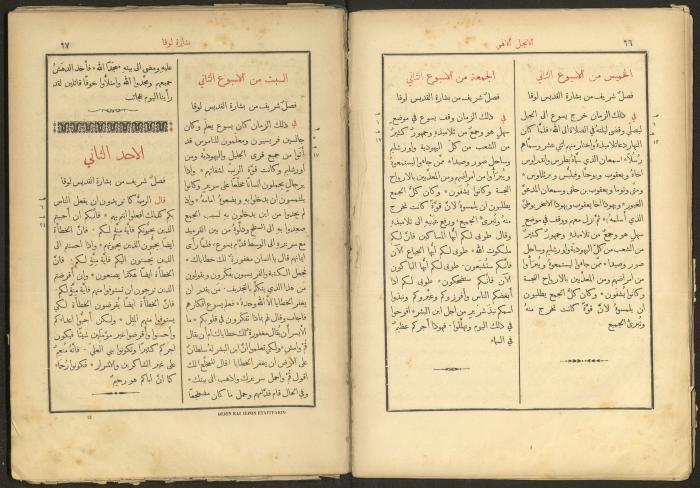 ٦٦
الانجيل الالهي
الخميس من الاسبوع الثاني
فصلٌ شريف من بشارة القديس لوقا
في ذلك الزمان خرج يسوع الى الجبل
ليصلي وقضى ليلتهُ في الصلاة الى الله* فلما كان
النهار دعا تلاميذهُ واختار منهم اثني عشر وسماهم
رسلًا* سمعان الذي سماهُ بطرس واندراوس
اخاهُ ويعقوب ويوحنا وفيلبس وبرثلماوس*
ومتى وتوما ويعقوب بن حلفى وسمعان المدعو
الغيور* ويهوذا اخا يعقوب ويهوذا الاسخريوطي
الذي أسلمهُ* ثم نزل معهم ووقف في موضع
سهلٍ هو وجمعٌ من تلاميذهِ وجمهورٌ كثيرٌ
من الشعب من كل اليهودية واورشليم وساحل
صور وصيدا* ممن جاءوا ليستمعوهُ ويُبرَأوا
من امراضهم ومن المعذبين بالارواح النجسة
وكانوا يُشفون* وكان كل الجمع يطلبون
ان يلمسوهُ لانَّ قوّةً كانت تخرج منهُ
وتُبرئ الجميع
الجمعة من الاسبوع الثاني
فصلٌ شريف من بشارة القديس لوقا
في ذلك الزمان وقف يسوع في موضعٍ
سهلٍ هو وجمعٌ من تلاميذهِ وجمهورٌ كثيرٌ
من الشعب من كل اليهودية واورشليم
وساحل صور وصيدا* ممن جاءوا ليستمعوهُ
ويُبرَأوا من امراضهم ومن المعذبين بالارواح
النجسة وكانوا يُشفون* وكان كل الجمع
يطلبون ان يلمسوهُ لانَّ قوّةً كانت تخرج
منهُ وتُبرئ الجميع* ورفع عينيهِ الى تلاميذهِ
وقال طوبى لكم ايها المساكين فانَّ لكم
ملكوت الله* طوبى لكم ايها الجياع الآن
فانكم ستُشبَعون* طوبى لكم ايها الباكون
الآن فانكم ستضحكون* طوبى لكم اذا
ابغضكم الناس وافرزوكم وعيروكم ونبذوا
اسمكم نبذ شريرٍ من اجل ابن البشر* افرحوا
في ذلك اليوم وتهللوا* فهوذا أجركم عظيمٌ
في السماء
بشارة لوقا
٦٧
السبت من الاسبوع الثاني
فصلٌ شريف من بشارة القديس لوقا
في ذلك الزمان كان يسوع يعلّم وكان
جالسين فريسيون ومعلمون للناموس قد
أتوا من جميع قرى الجليل واليهودية ومن
اورشليم وكانت قوّة الرب لشفائهم* واذا
برجالٍ يحملون انسانًا مخلعًا على سريرٍ وكانوا
يلتمسون ان يدخلوا بهِ ويضعوهُ امامهُ* واذ
لم يجدوا من اين يدخلون بهِ لسبب الجمع
صعدوا بهِ الى السطح ودلّوهُ من بين القرميد
مع سريرهِ الى الوسط قدام يسوع* فلما رأى
ايمانهم قال يا انسان مغفورةٌ لك خطاياك*
فجعل الكتبة والفريسيون يفكرون ويقولون
مَن هذا الذي يتكلم بالتجديف* مَن يقدر ان
يغفر الخطايا الا الله وحدهُ* فعلم يسوع افكارهم
فاجاب وقال لهم بماذا تفكرون في قلوبكم* ما
الأيسر أن يقال مغفورةٌ لك خطاياك ام أن يقال
قم وامشِ* ولكي تعلموا أنَّ ابن البشر لهُ سلطانٌ
على الارض ان يغفر الخطايا (قال للمخلع) لك
اقول قم واحمل سريرك واذهب الى بيتك*
وفي الحال قام قدامهم وحمل ما كان مضطجعًا
عليهِ ومضى الى بيتهِ ممجدًا الله* فأخذ الدهشُ
جميعهم ومجدوا الله وامتلأوا خوفًا قائلين لقد
رأينا اليوم عجائب
الاحد الثاني
فصلٌ شريف من بشارة القديس لوقا
قال الربُّ كما تريدون ان يفعل الناس
بكم كذلك افعلوا انتم بهم* فانكم ان احببتم
الذين يحبونكم فأيّة منّةٍ لكم* فانَّ الخطأة
ايضًا يحبون الذين يحبونهم* واذا احسنتم الى
الذين يحسنون اليكم فأيّة منّةٍ لكم* فانَّ
الخطأة ايضًا هكذا يصنعون* وإن أقرضتم
الذين ترجون أن تستوفوا منهم فأيّة منّةٍ لكم*
فانَّ الخطأة ايضًا يقرضون الخطأة لكي
يستوفوا منهم المثل* ولكن أحبّوا اعداءكم
وأحسنوا وأقرضوا غير مؤملين شيئًا فيكون
اجركم كثيرًا وتكونوا بني العليّ* فانّهُ منعمٌ
على غير الشاكرين والاشرار* فكونوا رُحماء
كما انَّ اباكم هو رحيمٌ
ΘΕΙΟΝ ΚΑΙ ΙΕΡΟΝ ΕΥΑΓΓΕΛΙΟΝ